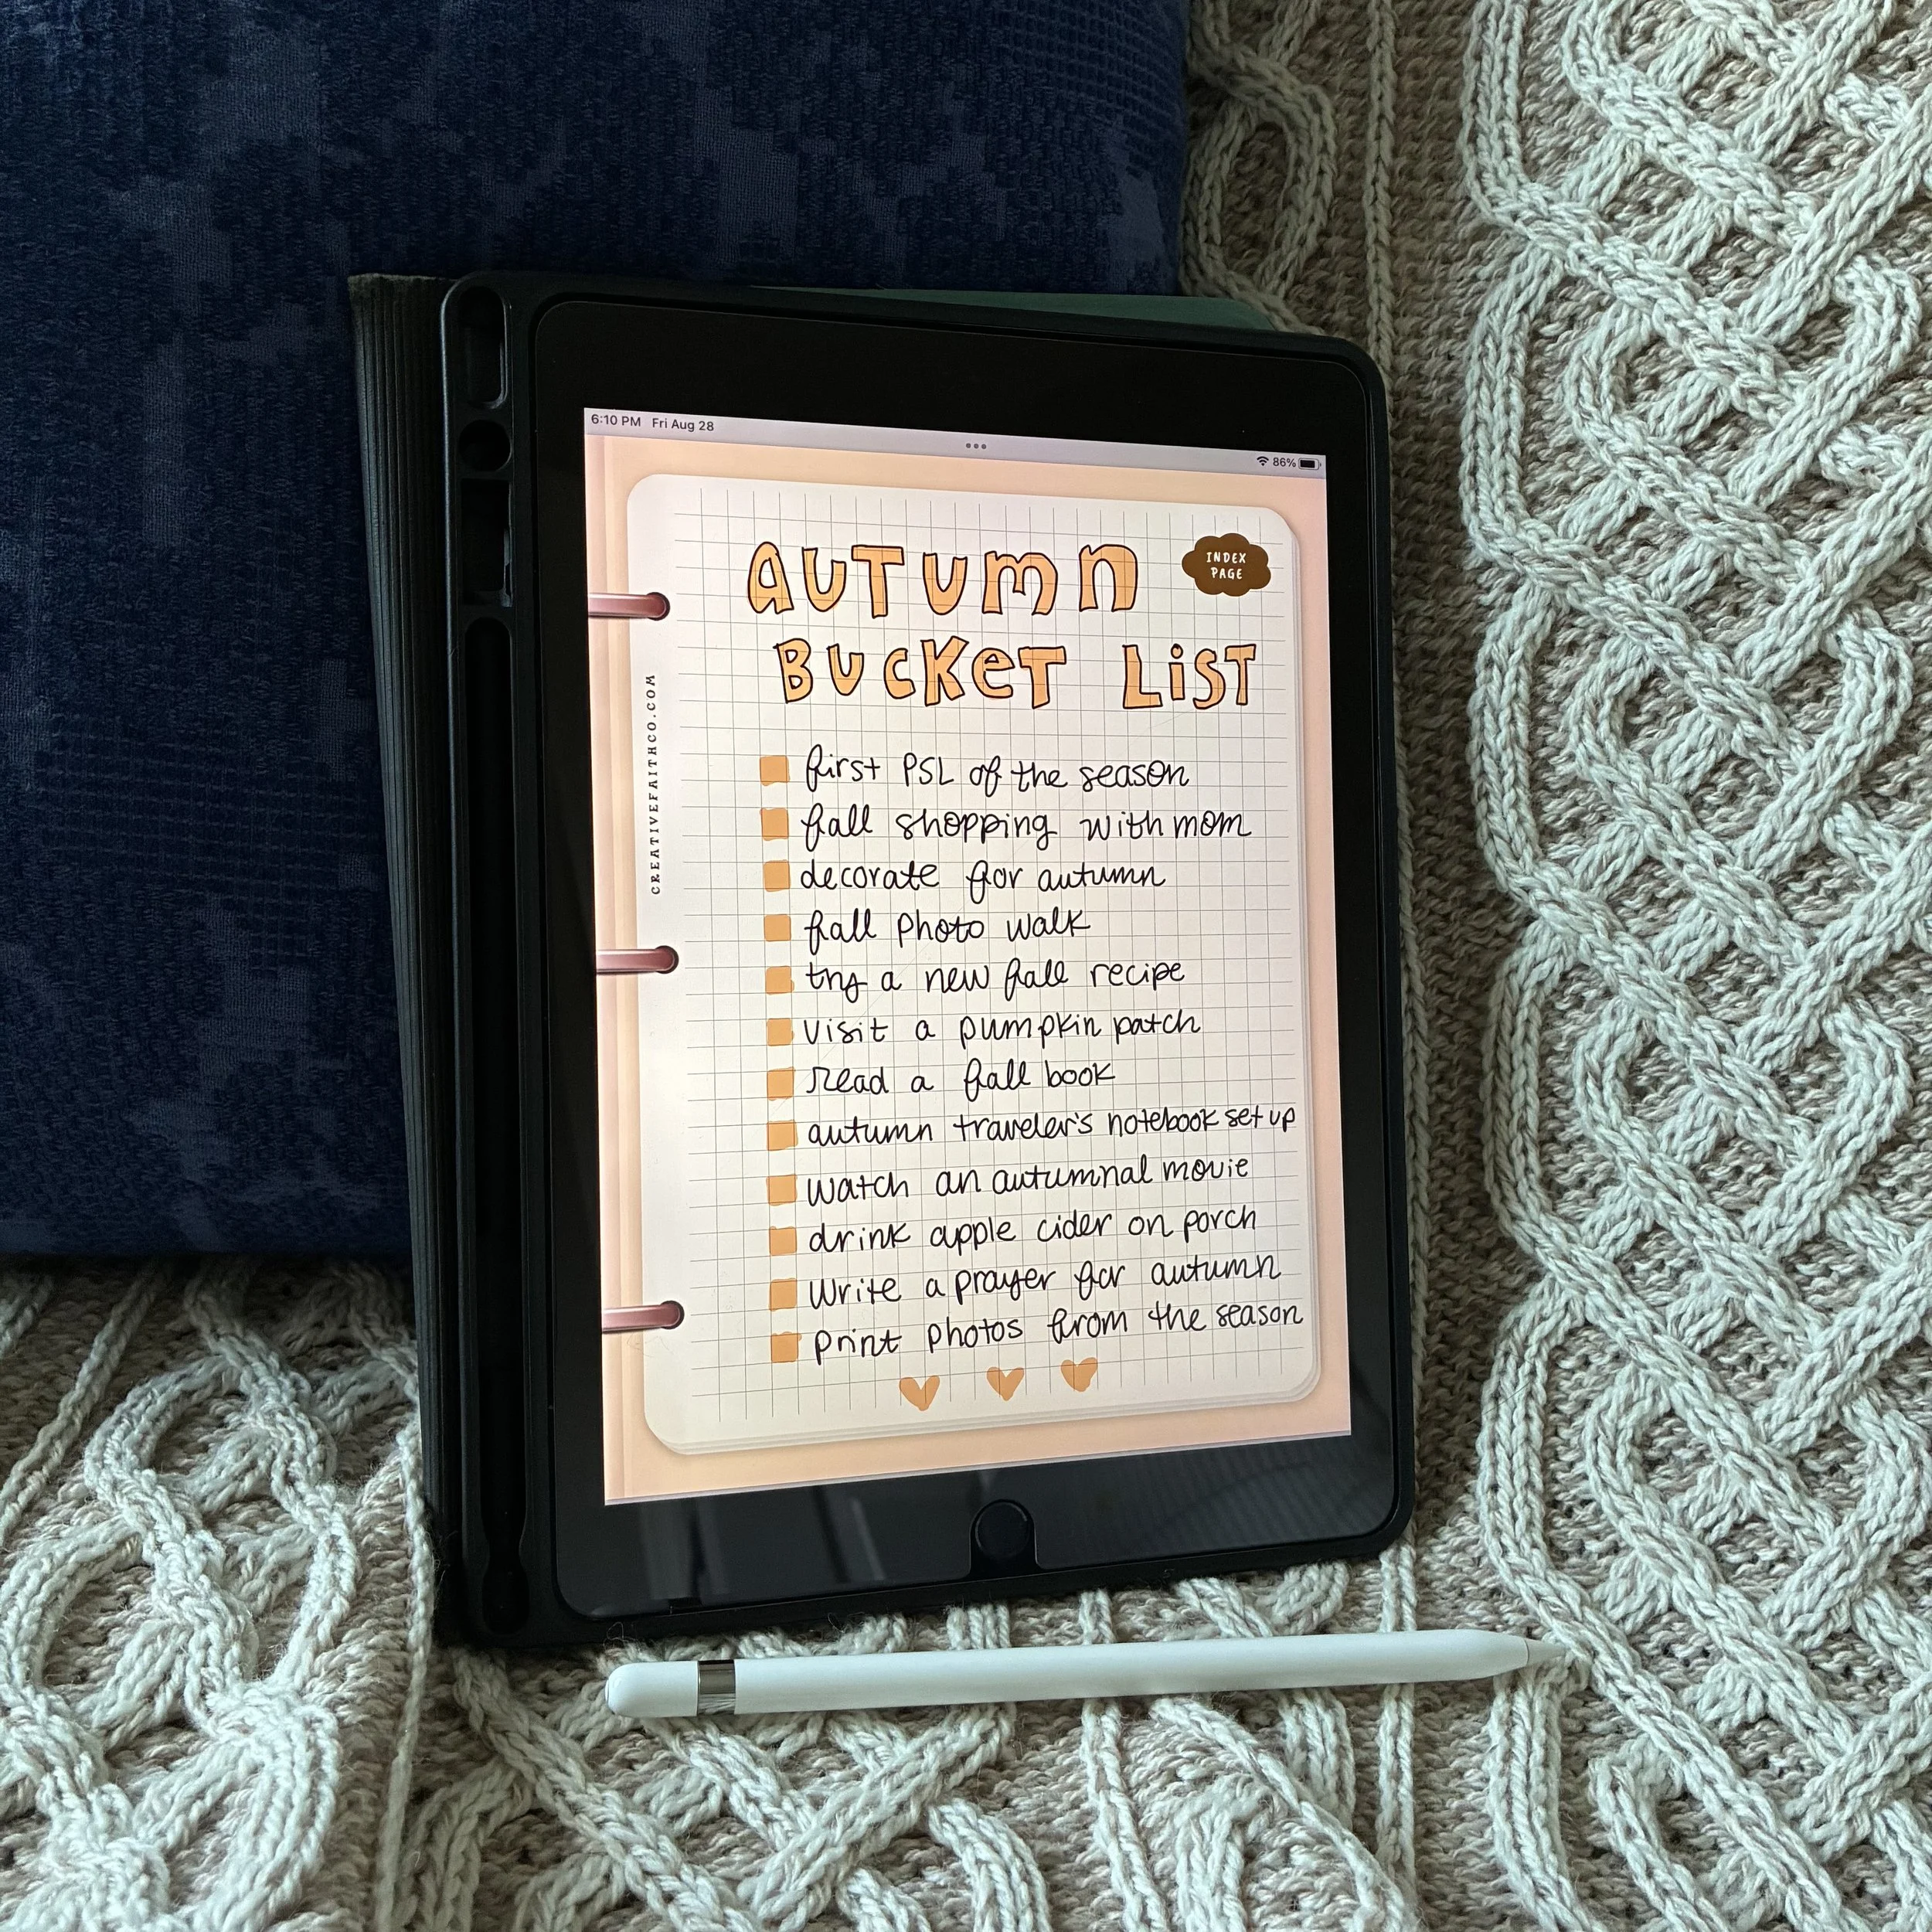 6:10 PM Fri Aug 28
86%
AUTUMN
BUCKET LIST
INDEX
PAGE
CREATIVEFAITHCO.COM
first PSL of the season
fall shopping with mom
decorate for autumn
fall photo walk
try a new fall recipe
visit a pumpkin patch
read a fall book
autumn traveler's notebook set up
watch an autumnal movie
drink apple cider on porch
Write a prayer for autumn
print photos from the season